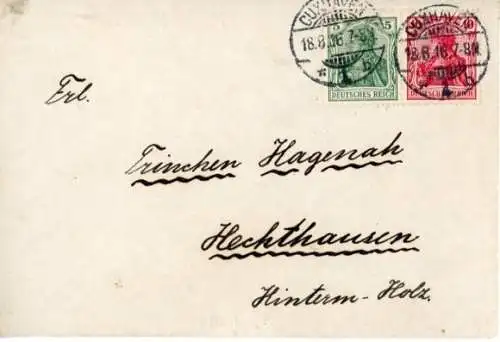 CUXHAVEN
18.8.16.7-8N.
* 1 b
5
DEUTSCHES REICH
CUXHAVEN
18.8.16.7-8N.
* b
10
DEUTSCHES REICH
Frl.
Trinchen Hagenah
Hechthausen
Hinterm-Holz.